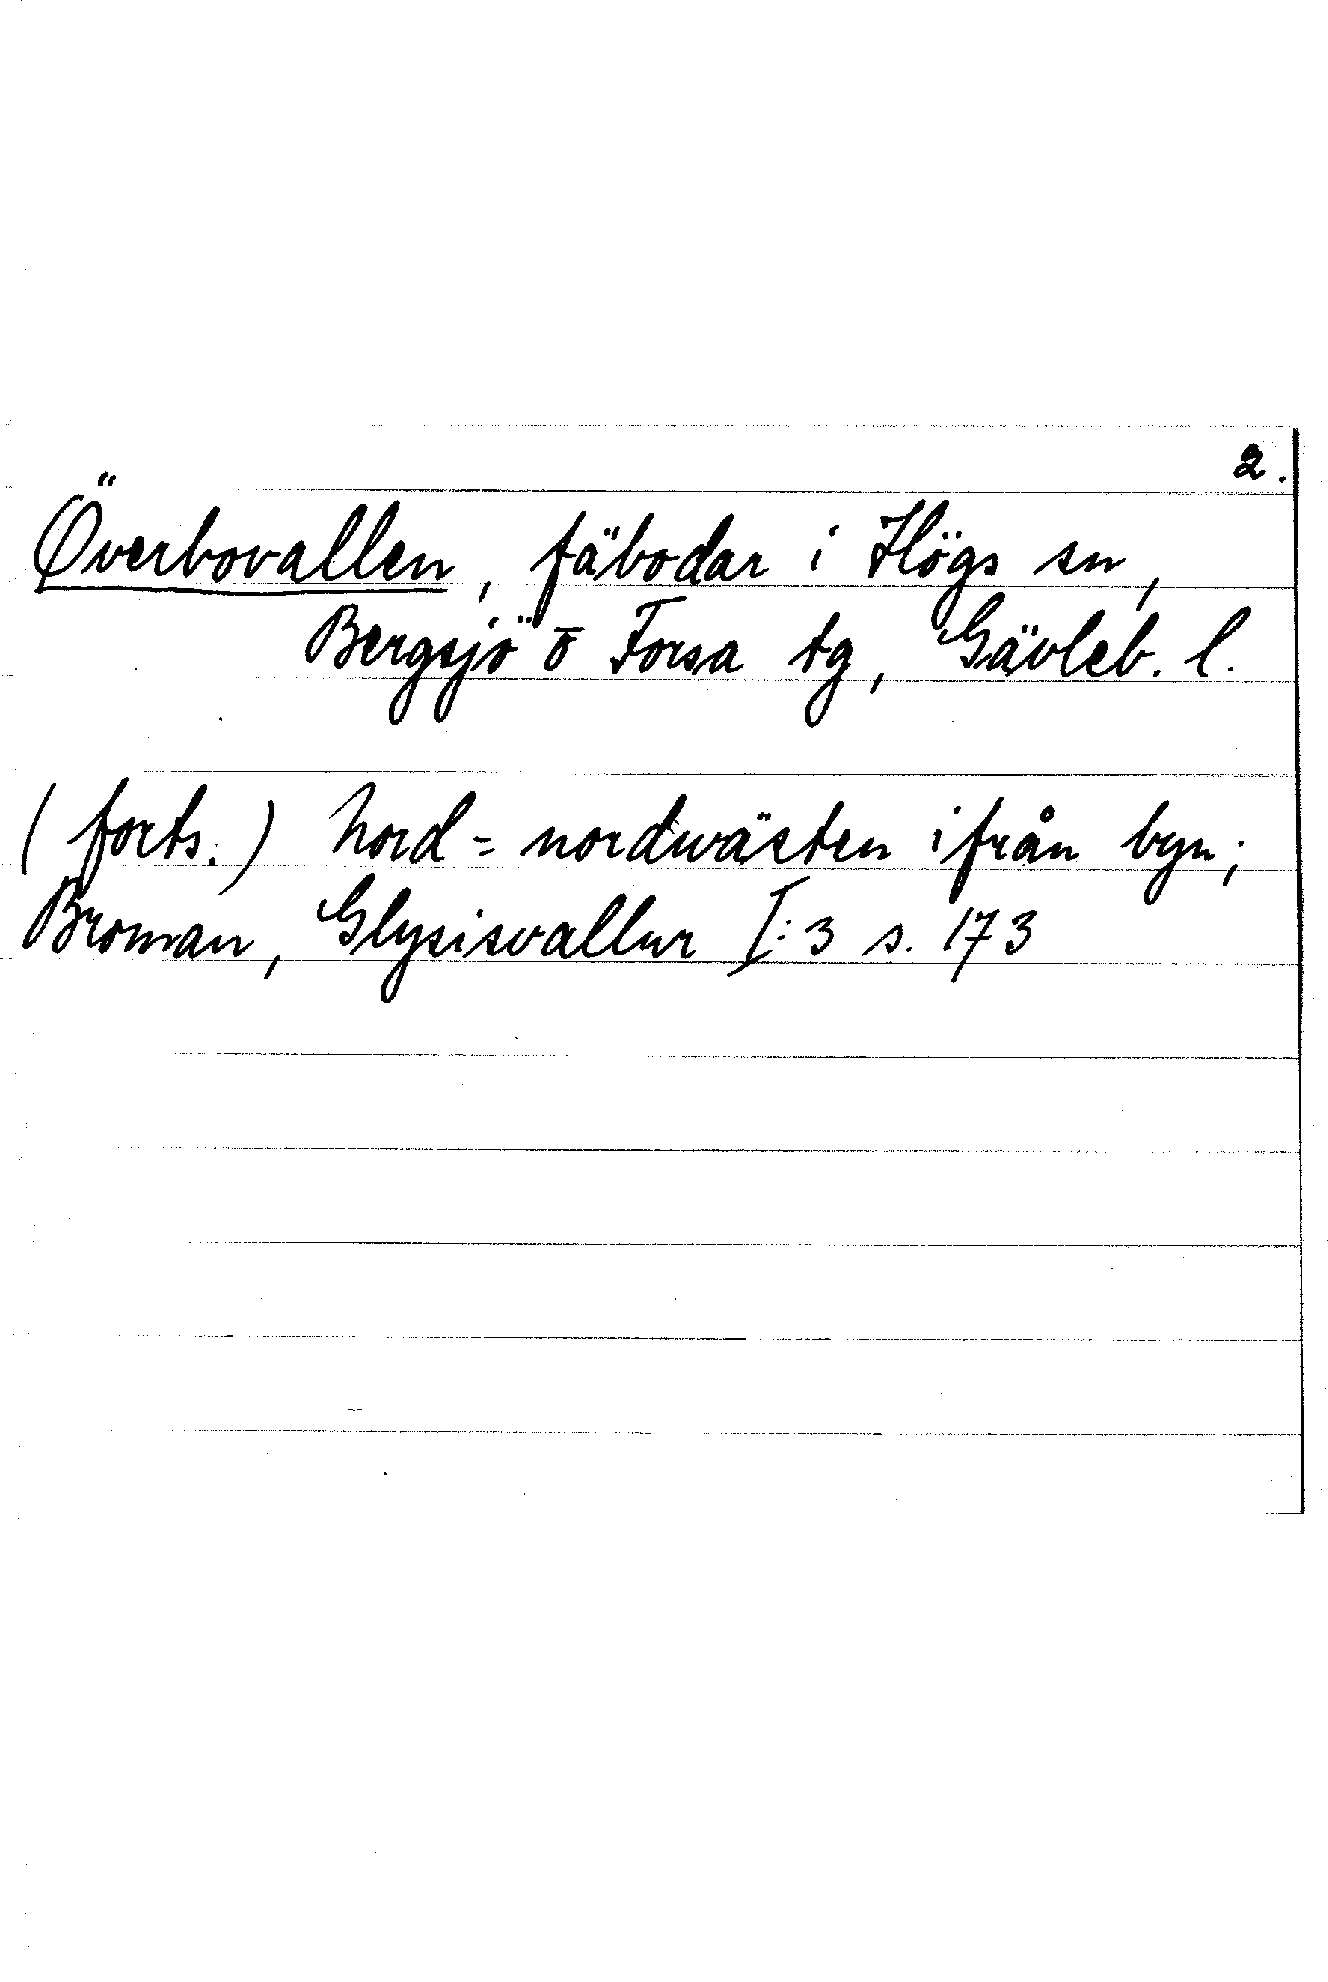 2.
Överbovallen, fäbodar i Högs sn,
Bergsjö o Forsa tg, Gävleb. l.
(forts.) Nord = nordwästen ifrån byn;
Broman, Glysisvallur I:3 s. 173